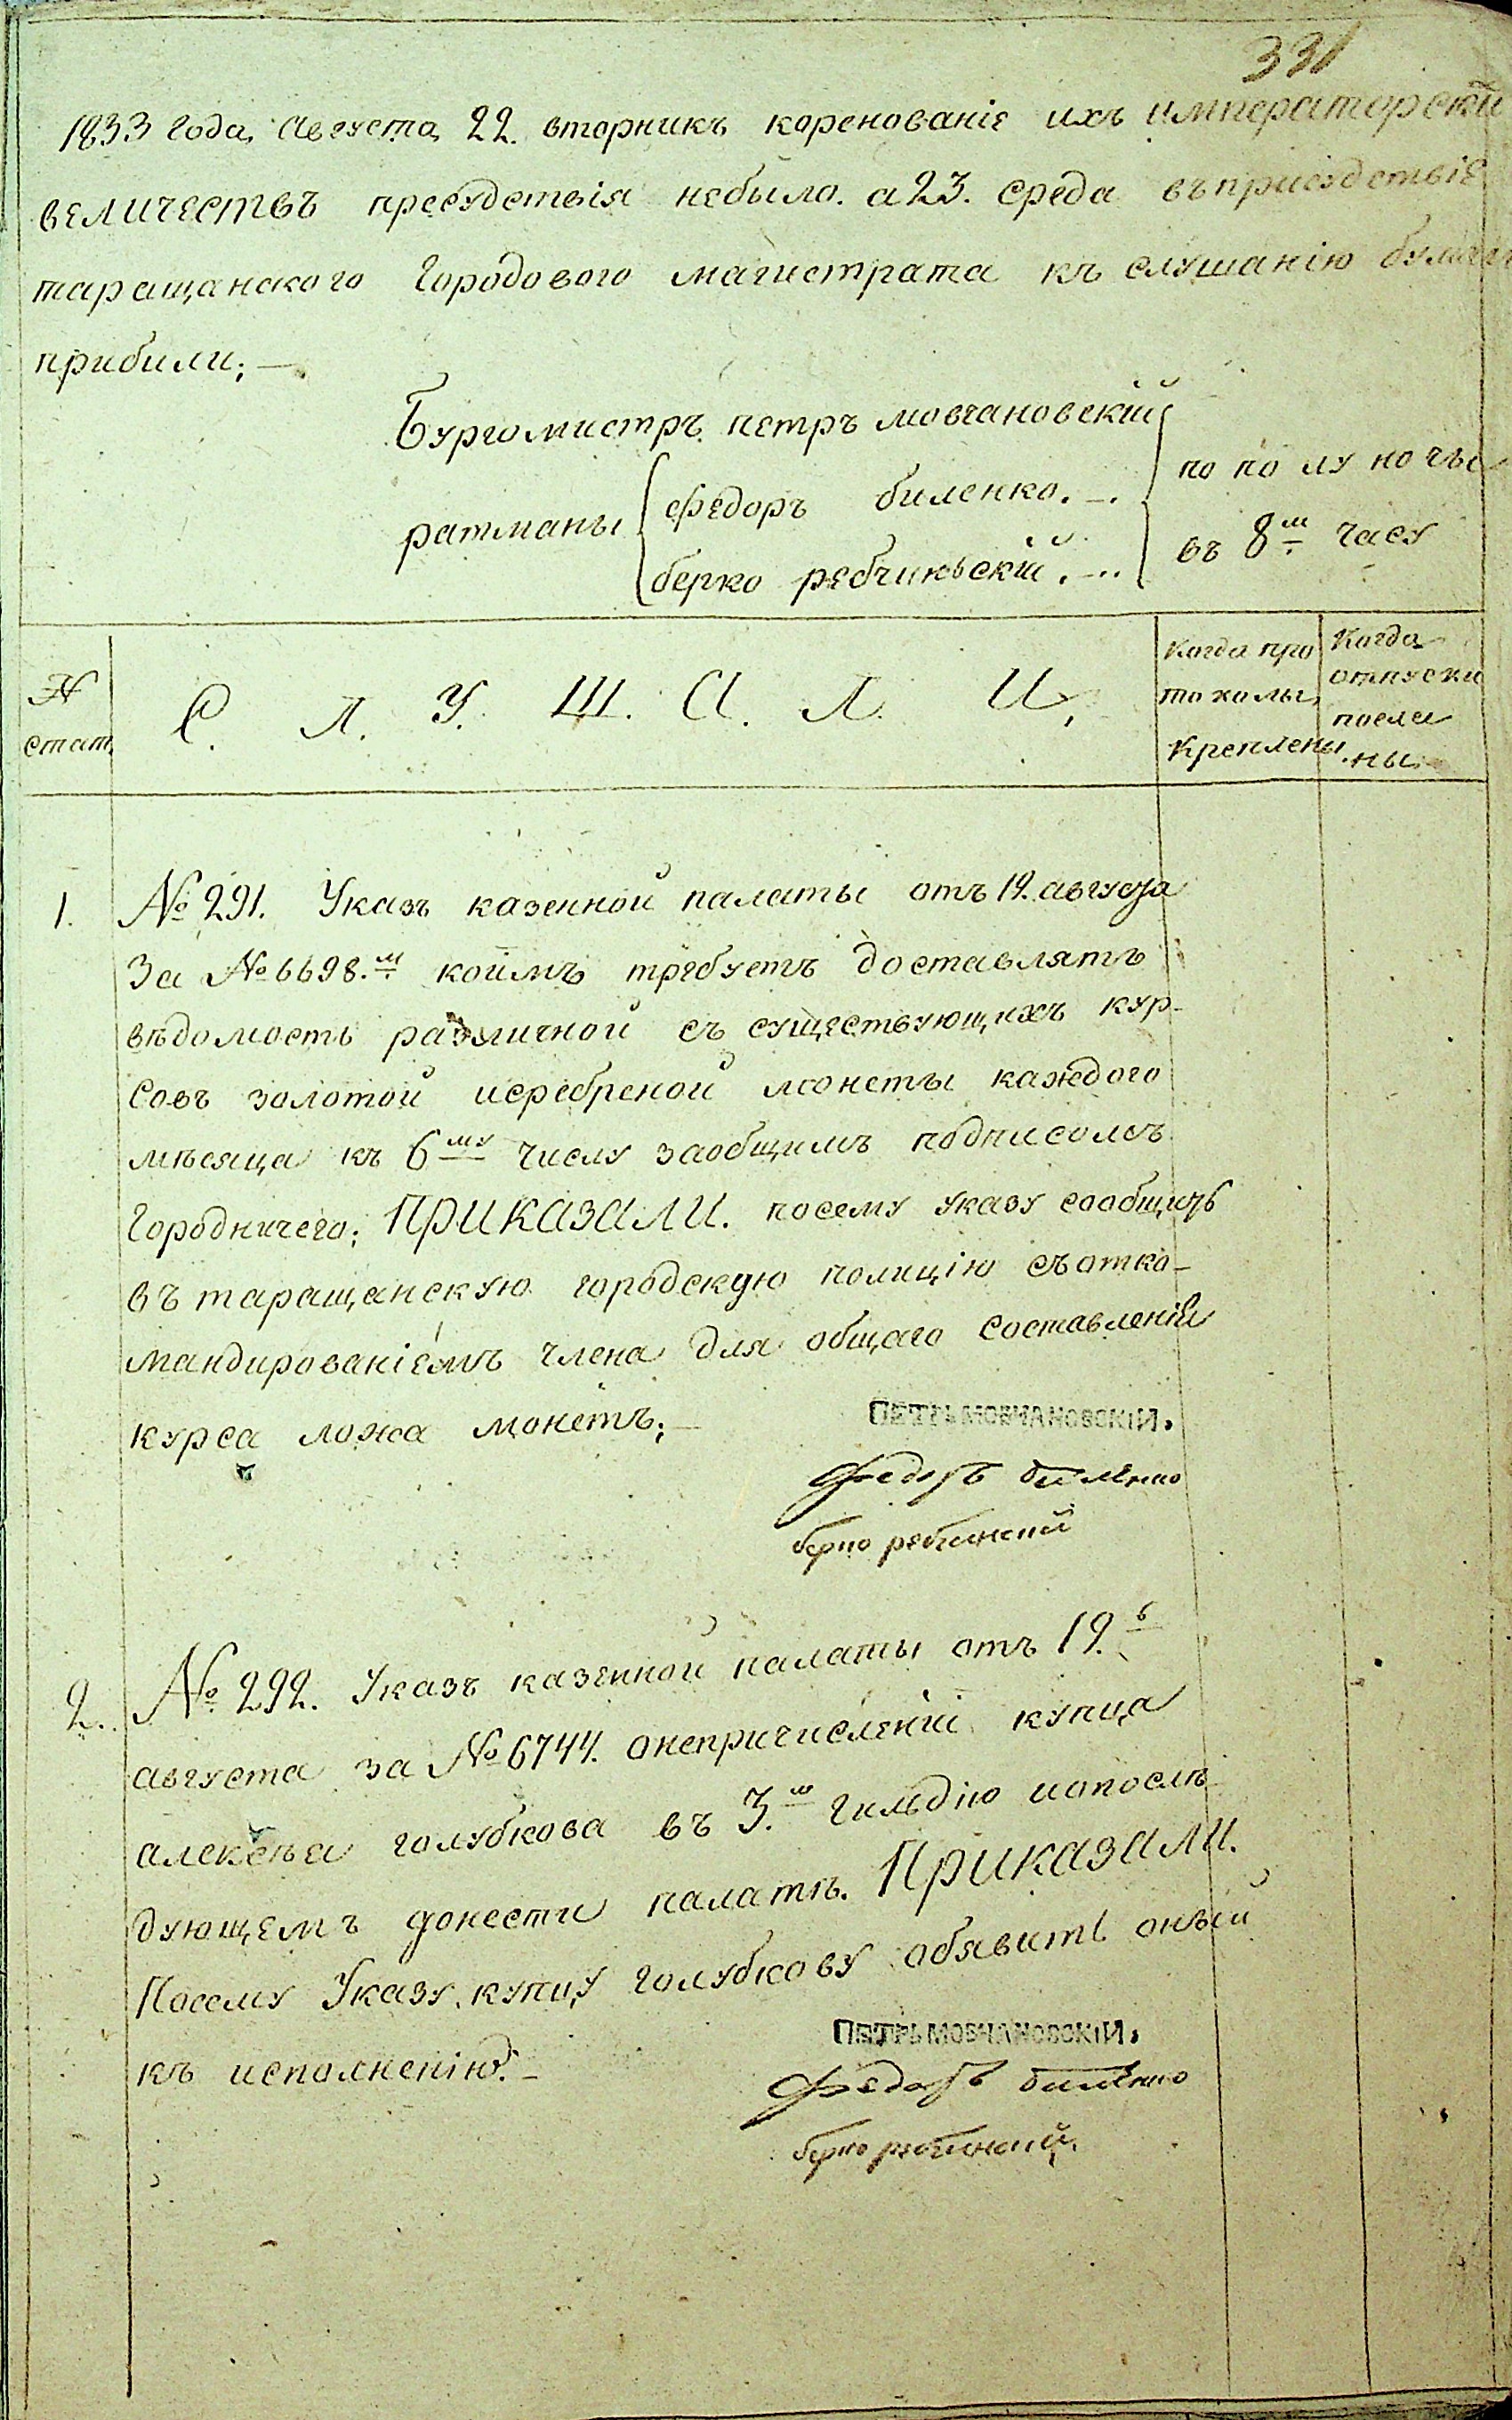 331
1833 года, августа 22. вторникъ коренованіе ихъ императорскй
величествъ пресудствія небыло. а 23. среда въ присудствіе
таращанского Городового магистрата къ слушанію бумаги
прибили; —
Бургомистръ петръ мовчановскій
ратманы
федоръ биленко. —.
берко ребчиньскій. —..
по полу ночьи
въ 8ш часу
№
стат.
С. Л. У. Ш. А. Л. И,
Когда про
токолы,
Креплены
Когда
отпуски
посла
ны.
1. № 291. Указъ казенной палаты отъ 19. августа
За № 6698.м коимъ требуетъ доставлять
вѣдомость различной съ существующихъ кур-
совъ золотой исеребреной монеты каждого
мѣсяца къ 6му числу заобщимъ подписомъ
Городничего; Приказали. посему указу сообщить
въ таращанскую городскую полицію съ отко-
мандированіемъ члена для общаго составленія
курса ложа монетъ; —
Петръ Мовчановскій.
Федоръ биленко
берко ребчинский
2. № 292. Указъ казенной палаты отъ 19.ь
августа за № 6744. онепричисленіи купца
алексѣя голубкова въ 3.ю гильдію ипослѣ
дующемъ донести палатѣ. Приказали.
Посему Указу, купцу голубкову обявить оный
къ исполненію. —
Петръ Мовчановскій.
Федоръ биленко
берко ребчинский.